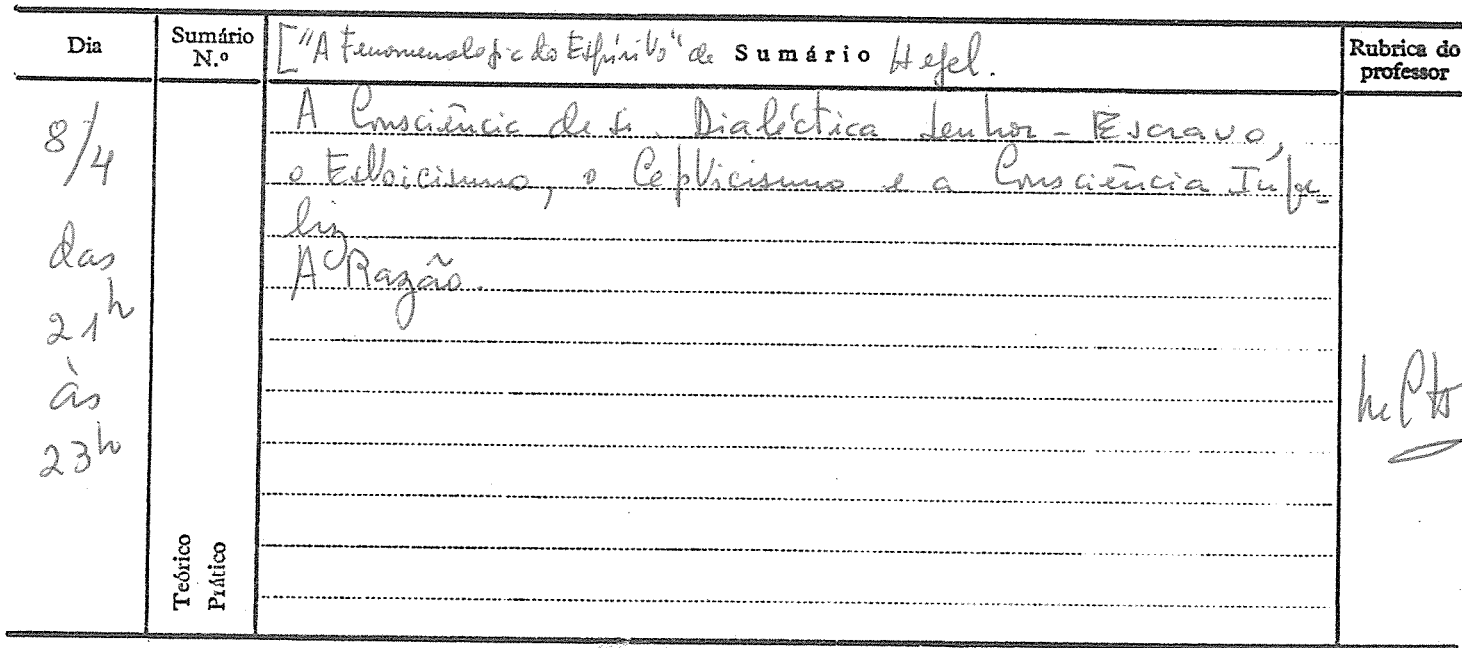 Dia
Sumário N.º
["A Fenomenologia do Espírito" de Sumário Hegel.
Rubrica do professor
8/4
das
21h
às
23h
A Consciência de si. Dialéctica Senhor - Escravo,
o Estoicismo, o Cepticismo e a Consciência Infe-
liz
A Razão.
Teórico
Prático